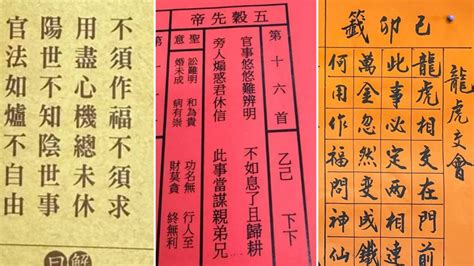 不須作福不須求
用盡心機總未休
陽世不知陰世事
官法如爐不自由
解曰
五穀先帝
第十六首 乙己 下下
官事悠悠難辨明 不如息了且歸耕
旁人煽惑君休信 此事當謀親弟兄
聖意
訟難明 和為貴 功名無 行人至
婚未成 病有祟 財莫貪 終無利
己卯籤
龍虎交會
龍虎相交在門前
此事必定兩相連
萬金忽然變成鐵
何用作福問神仙